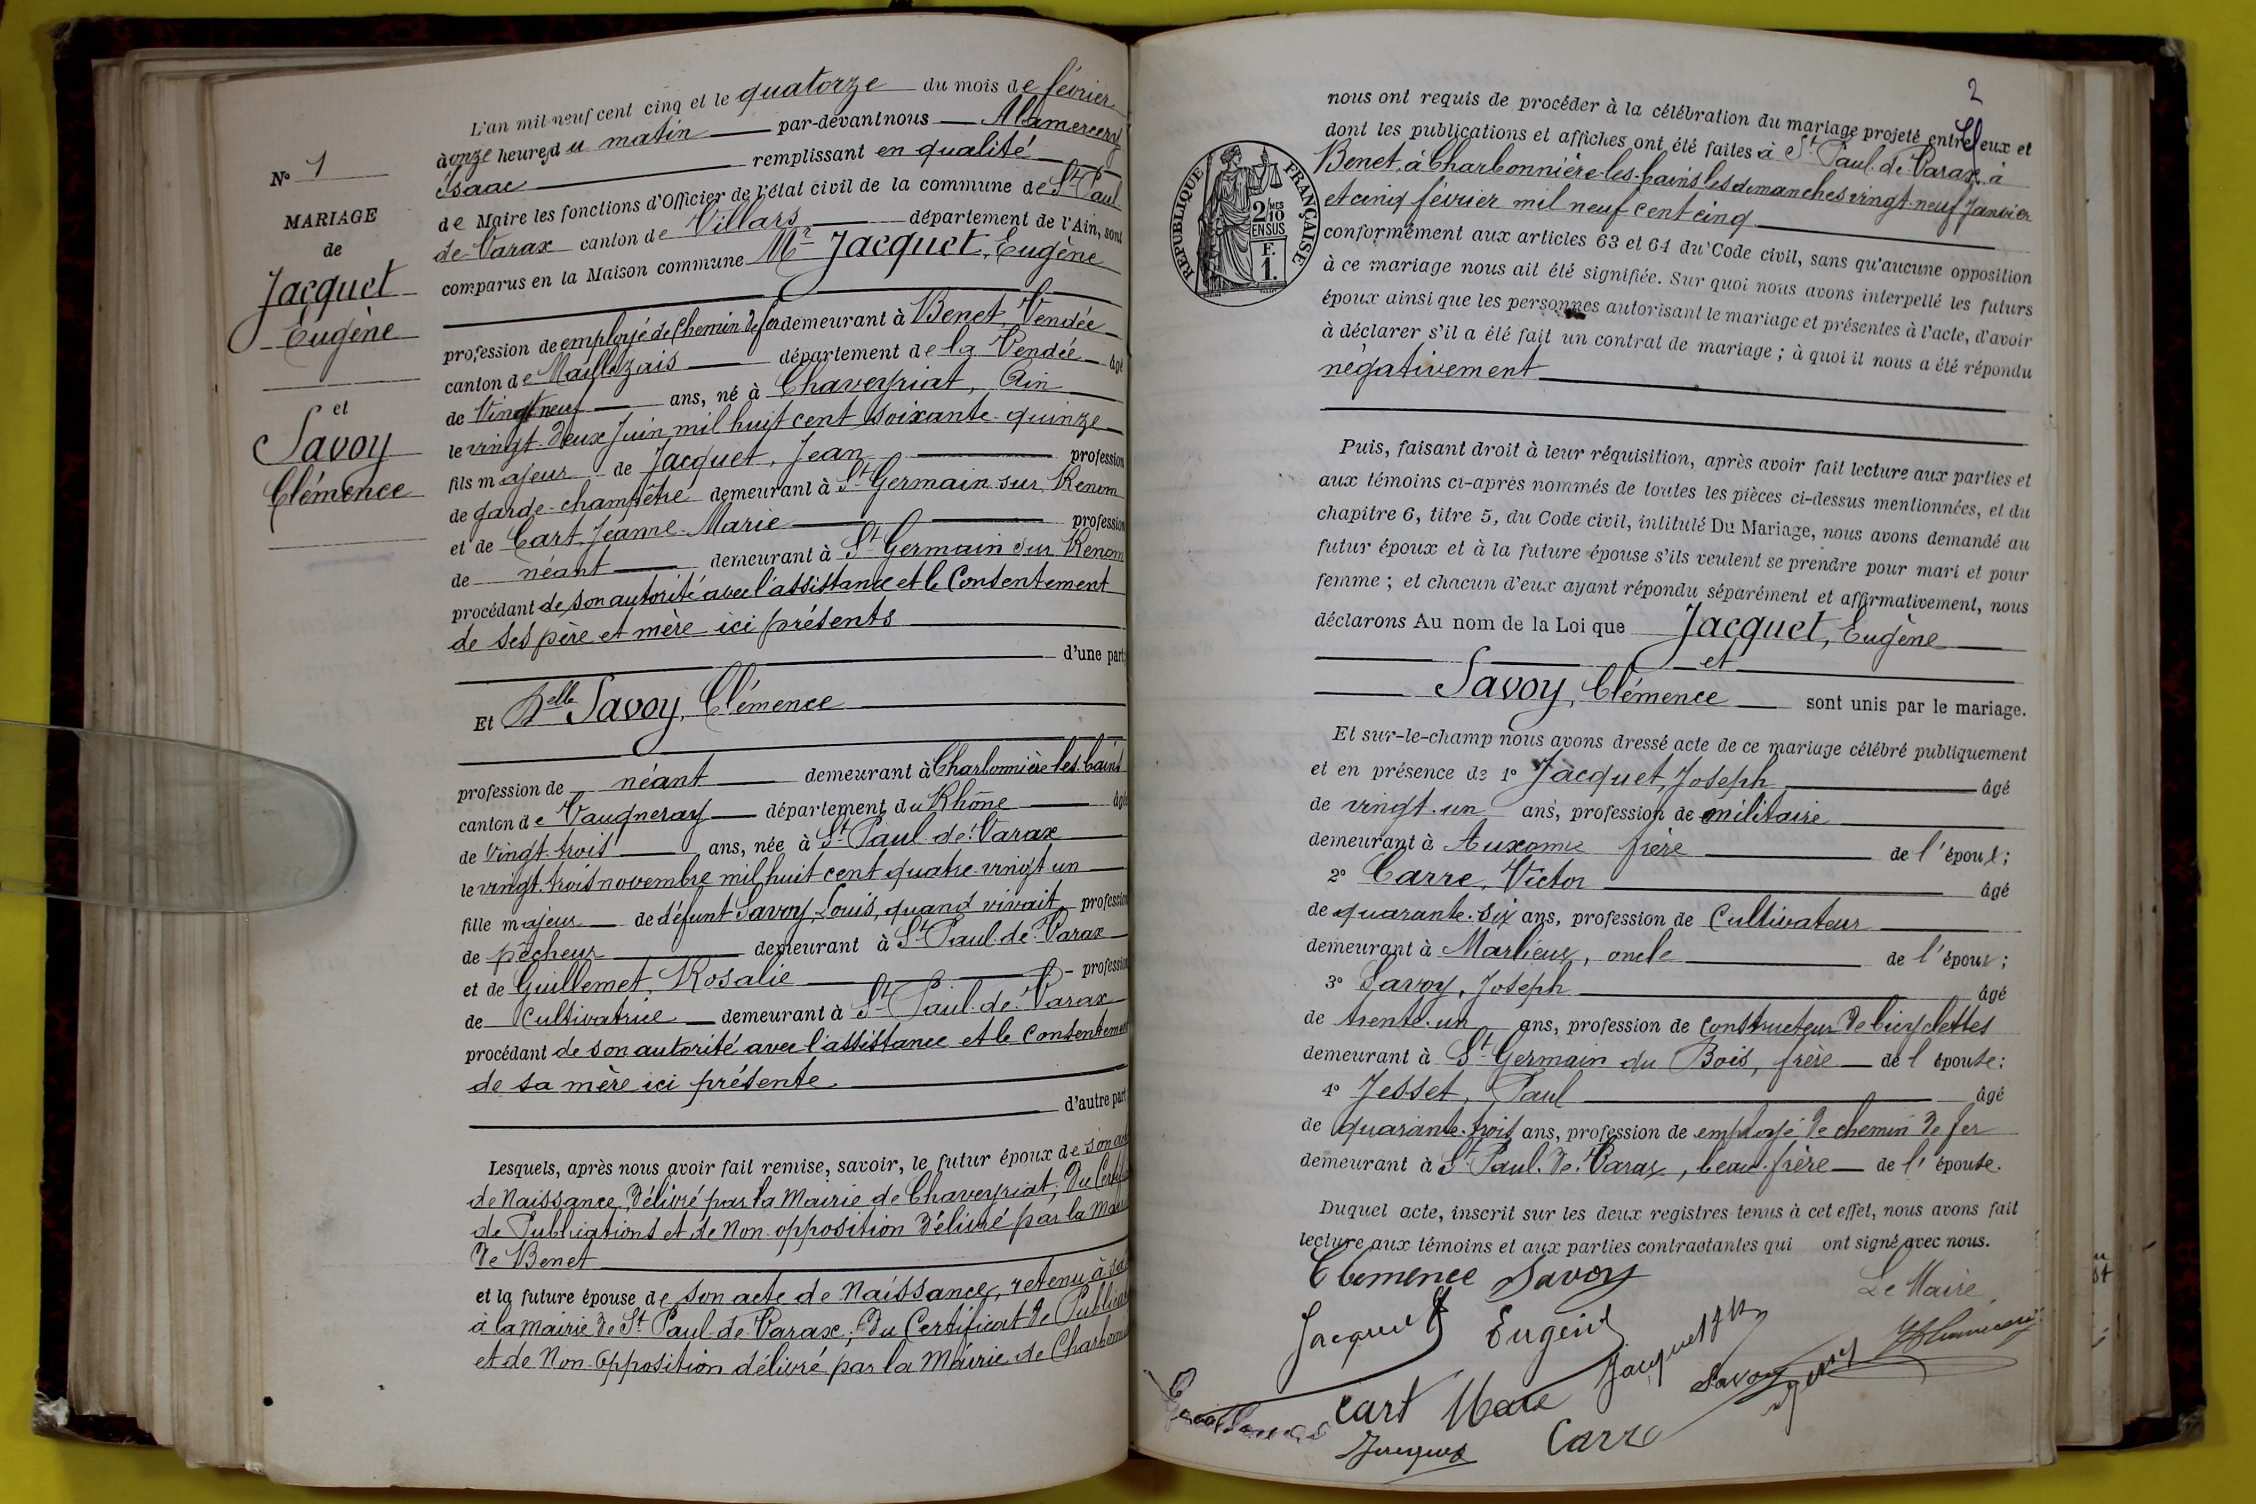 N° 1
MARIAGE
de
Jacquet
Eugène
et
Savoy
Clémence
L'an mil neuf cent cinq et le quatorze du mois de février
à onze heures du matin par-devant nous Alamercery
Isaac remplissant en qualité
de Maire les fonctions d'Officier de l'état civil de la commune de St Paul
de Varax canton de Villars département de l'Ain, sont
comparus en la Maison commune Mr Jacquet, Eugène
profession de employé de Chemin de fer demeurant à Benet, Vendée
canton de Maillezais département de la Vendée âgé
de Vingt neuf ans, né à Chaveyriat, Ain
le vingt-deux Juin mil huit cent soixante-quinze
fils majeur de Jacquet, Jean profession
de garde-champêtre demeurant à St Germain sur Renom
et de Cart, Jeanne-Marie profession
de néant demeurant à St Germain sur Renom
procédant de son autorité avec l'assistance et le Consentement
de ses père et mère ici présents
d'une part;
Et Delle Savoy, Clémence
profession de néant demeurant à Charbonnière-les-bains
canton de Vaugneray département du Rhône âgée
de vingt-trois ans, née à St Paul-de-Varax
le vingt-trois novembre mil huit cent quatre-vingt un
fille majeur de défunt Savoy, Louis, quand vivait profession
de pêcheur demeurant à St Paul-de-Varax
et de Guillemet, Rosalie profession
de Cultivatrice demeurant à St Paul-de-Varax
procédant de son autorité avec l'assistance et le Consentement
de sa mère ici présente
d'autre part
Lesquels, après nous avoir fait remise, savoir, le futur époux de son
de Naissance, Délivré par la Mairie de Chaveyriat, Du
de Publications et de Non-opposition Délivré par la
De Benet
et la future épouse de son acte de Naissance, retenu à
à la Mairie De St Paul-de-Varax, Du Certificat De
et de Non-Opposition délivré par la Mairie de
2
nous ont requis de procéder à la célébration du mariage projeté entre eux et
dont les publications et affiches ont été faites à St Paul-de-Varax à
Benet, à Charbonnière-les-bains les dimanches vingt-neuf Janvier
et cinq février mil neuf cent cinq
RÉPUBLIQUE FRANÇAISE
2/10MES
EN SUS
F.
1.
conformément aux articles 63 et 64 du Code civil, sans qu'aucune opposition
à ce mariage nous ait été signifiée. Sur quoi nous avons interpellé les futurs
époux ainsi que les personnes autorisant le mariage et présentes à l'acte, d'avoir
à déclarer s'il a été fait un contrat de mariage ; à quoi il nous a été répondu
négativement
Puis, faisant droit à leur réquisition, après avoir fait lecture aux parties et
aux témoins ci-après nommés de toutes les pièces ci-dessus mentionnées, et du
chapitre 6, titre 5, du Code civil, intitulé Du Mariage, nous avons demandé au
futur époux et à la future épouse s'ils veulent se prendre pour mari et pour
femme ; et chacun d'eux ayant répondu séparément et affirmativement, nous
déclarons Au nom de la Loi que Jacquet, Eugène
et
Savoy, Clémence sont unis par le mariage.
Et sur-le-champ nous avons dressé acte de ce mariage célébré publiquement
et en présence de 1° Jacquet, Joseph âgé
de vingt-un ans, profession de militaire
demeurant à Auxonne frère de l'époux;
2° Carre, Victor âgé
de quarante-six ans, profession de Cultivateur
demeurant à Marlieux, oncle de l'époux;
3° Savoy, Joseph âgé
de trente-un ans, profession de Constructeur De bicyclettes
demeurant à St Germain du Bois, frère de l'épouse;
4° Jesset, Paul âgé
de quarante-trois ans, profession de employé De chemin De fer
demeurant à St Paul-De-Varax, beau-frère de l'épouse.
Duquel acte, inscrit sur les deux registres tenus à cet effet, nous avons fait
lecture aux témoins et aux parties contractantes qui ont signé avec nous.
Clemence Savoy
Le Maire,
Jacquet Eugène
Cart Marie
Savoy
Carre